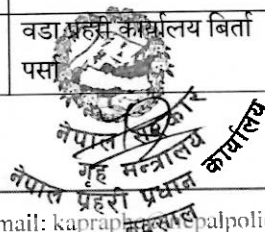 वडा प्रहरी कार्यालय बिर्ता
पर्सा
नेपाल सरकार
गृह मन्त्रालय
नेपाल प्रहरी प्रधान कार्यालय
mail: kapraph
epalpoli